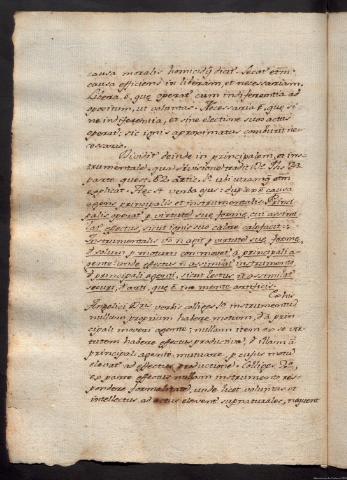 causa moralis homicidij dicit. Secat. etiã
causa efficiens in liberam, et necessariam.
Libera ẽ, quę operat. cum indifferentia ad
oppositum, ut voluntas. Necessaria ẽ, quę si-
ne indifferentia, et sine electione suos actus
operat. sic ignis approximatus comburit ne-
cessario.
Dividit. deinde in principalem, et ins-
trumentale, quã divisione tradit D. Th. 3ª
parte quęst. 62 artic. 1º ubi utramq̃ etiã
explicat. Hęc sṫ verba eius: duplex ẽ causa
agens, principalis et instrumentalis. Princi-
palis operat. p virtutẽ suę formę, cui assimi-
lat. effectus, sicut ignis suo calore calefacit.
Instrumentalis vº nõ agit p virtutẽ suę formę,
sed solum p motum quo movet. à principali a-
gente: unde effectus nõ assimilat. instrumento
sed principali agenti, sicut lectus nõ assimilat.
securi, sed arti, quę ẽ in mente artificis.
Angelici Dris verbis colliges 1º instrumentũ
nullum proprium habere motum, sed à prin-
cipali moveri agente; nullam item ex se vir-
tutem habere effectus productivã, sed illam à
principali agente mutuare, p cuius motũ
elevat. ad effectus productionẽ. Colliges 2º,
ex parte effectus nullam instrumento res-
pondere formalitatẽ, unde licet voluntas et
intellectus ad actus elevent. supnaturales, nequeunt